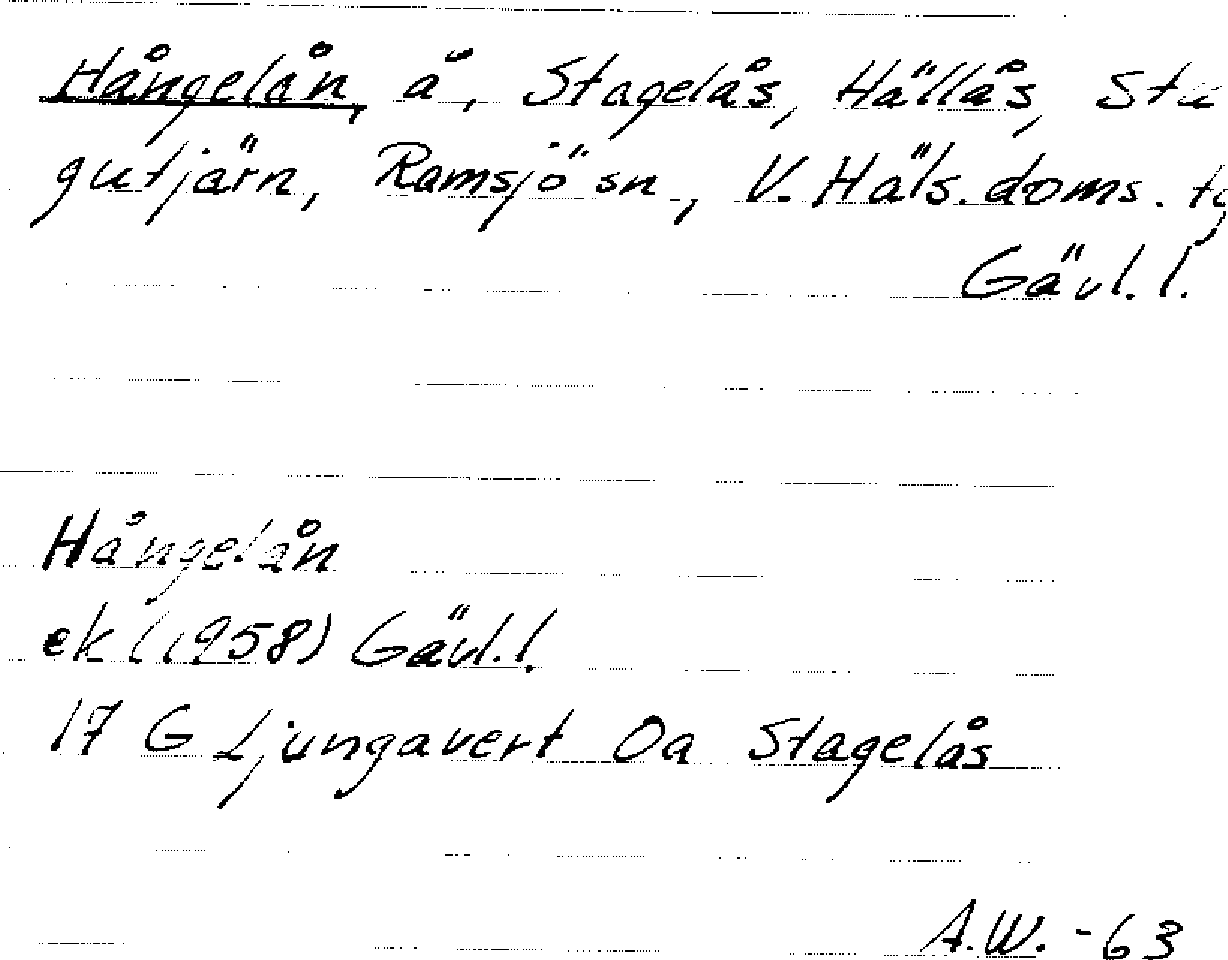 Hångelån, å, Stagelås, Hällås, Stu
gutjärn, Ramsjö sn, V. Häls. doms. 
Gävl. l.
Hångelån
ek (1958) Gävl. l.
17 G Ljungavert 0a Stagelås
A.W. -63